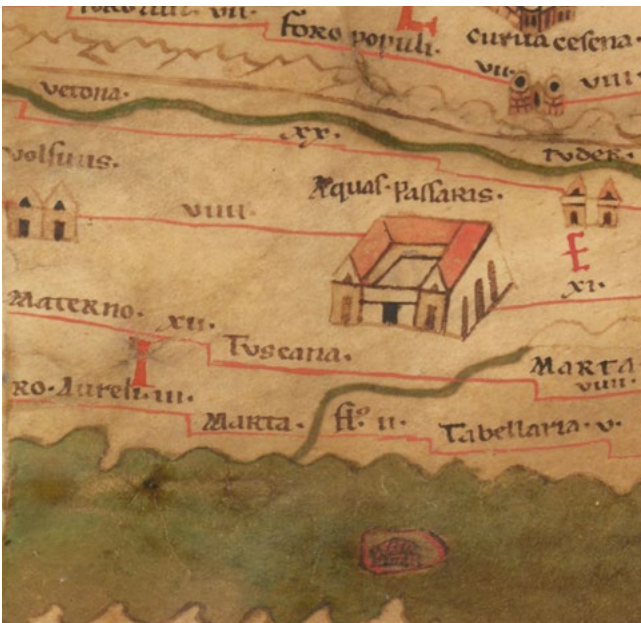 foro populi.
curua cesena
vii.
viiii
vetona.
xx.
tuder.
volsinis.
viiii
Aquas Passaris.
xi.
Materno. xii.
Tuscana.
Marta
viiii
ro Aureli. iii.
Marta. fl. ii.
Tabellaria v.